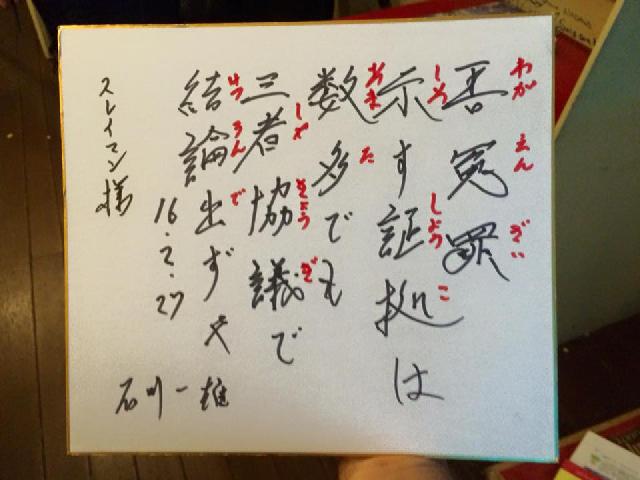 吾冤罪
わが えん ざい
示す証拠は
しめ しょう こ
数多でも
あま た
三者協議で
しゃ きょう ぎ
結論出ずや
けつ ろん で
16.2.27
石川一雄
スレイマン様